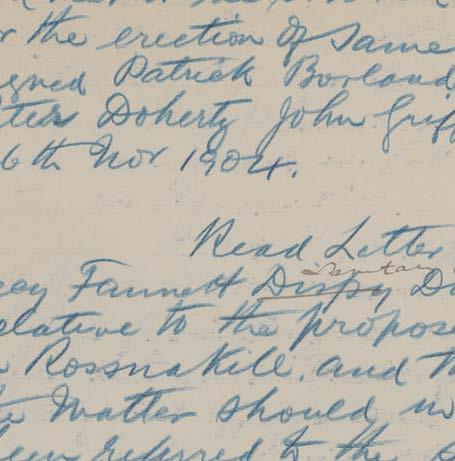 the erection of Same
igned Patrick Borland
Doherty John Griff
6th Nov 1904.
Read Letter
Sanitary
Fannett Dispy D
elative to the propose
Rossnakill, and th
Matter should
been referred to the